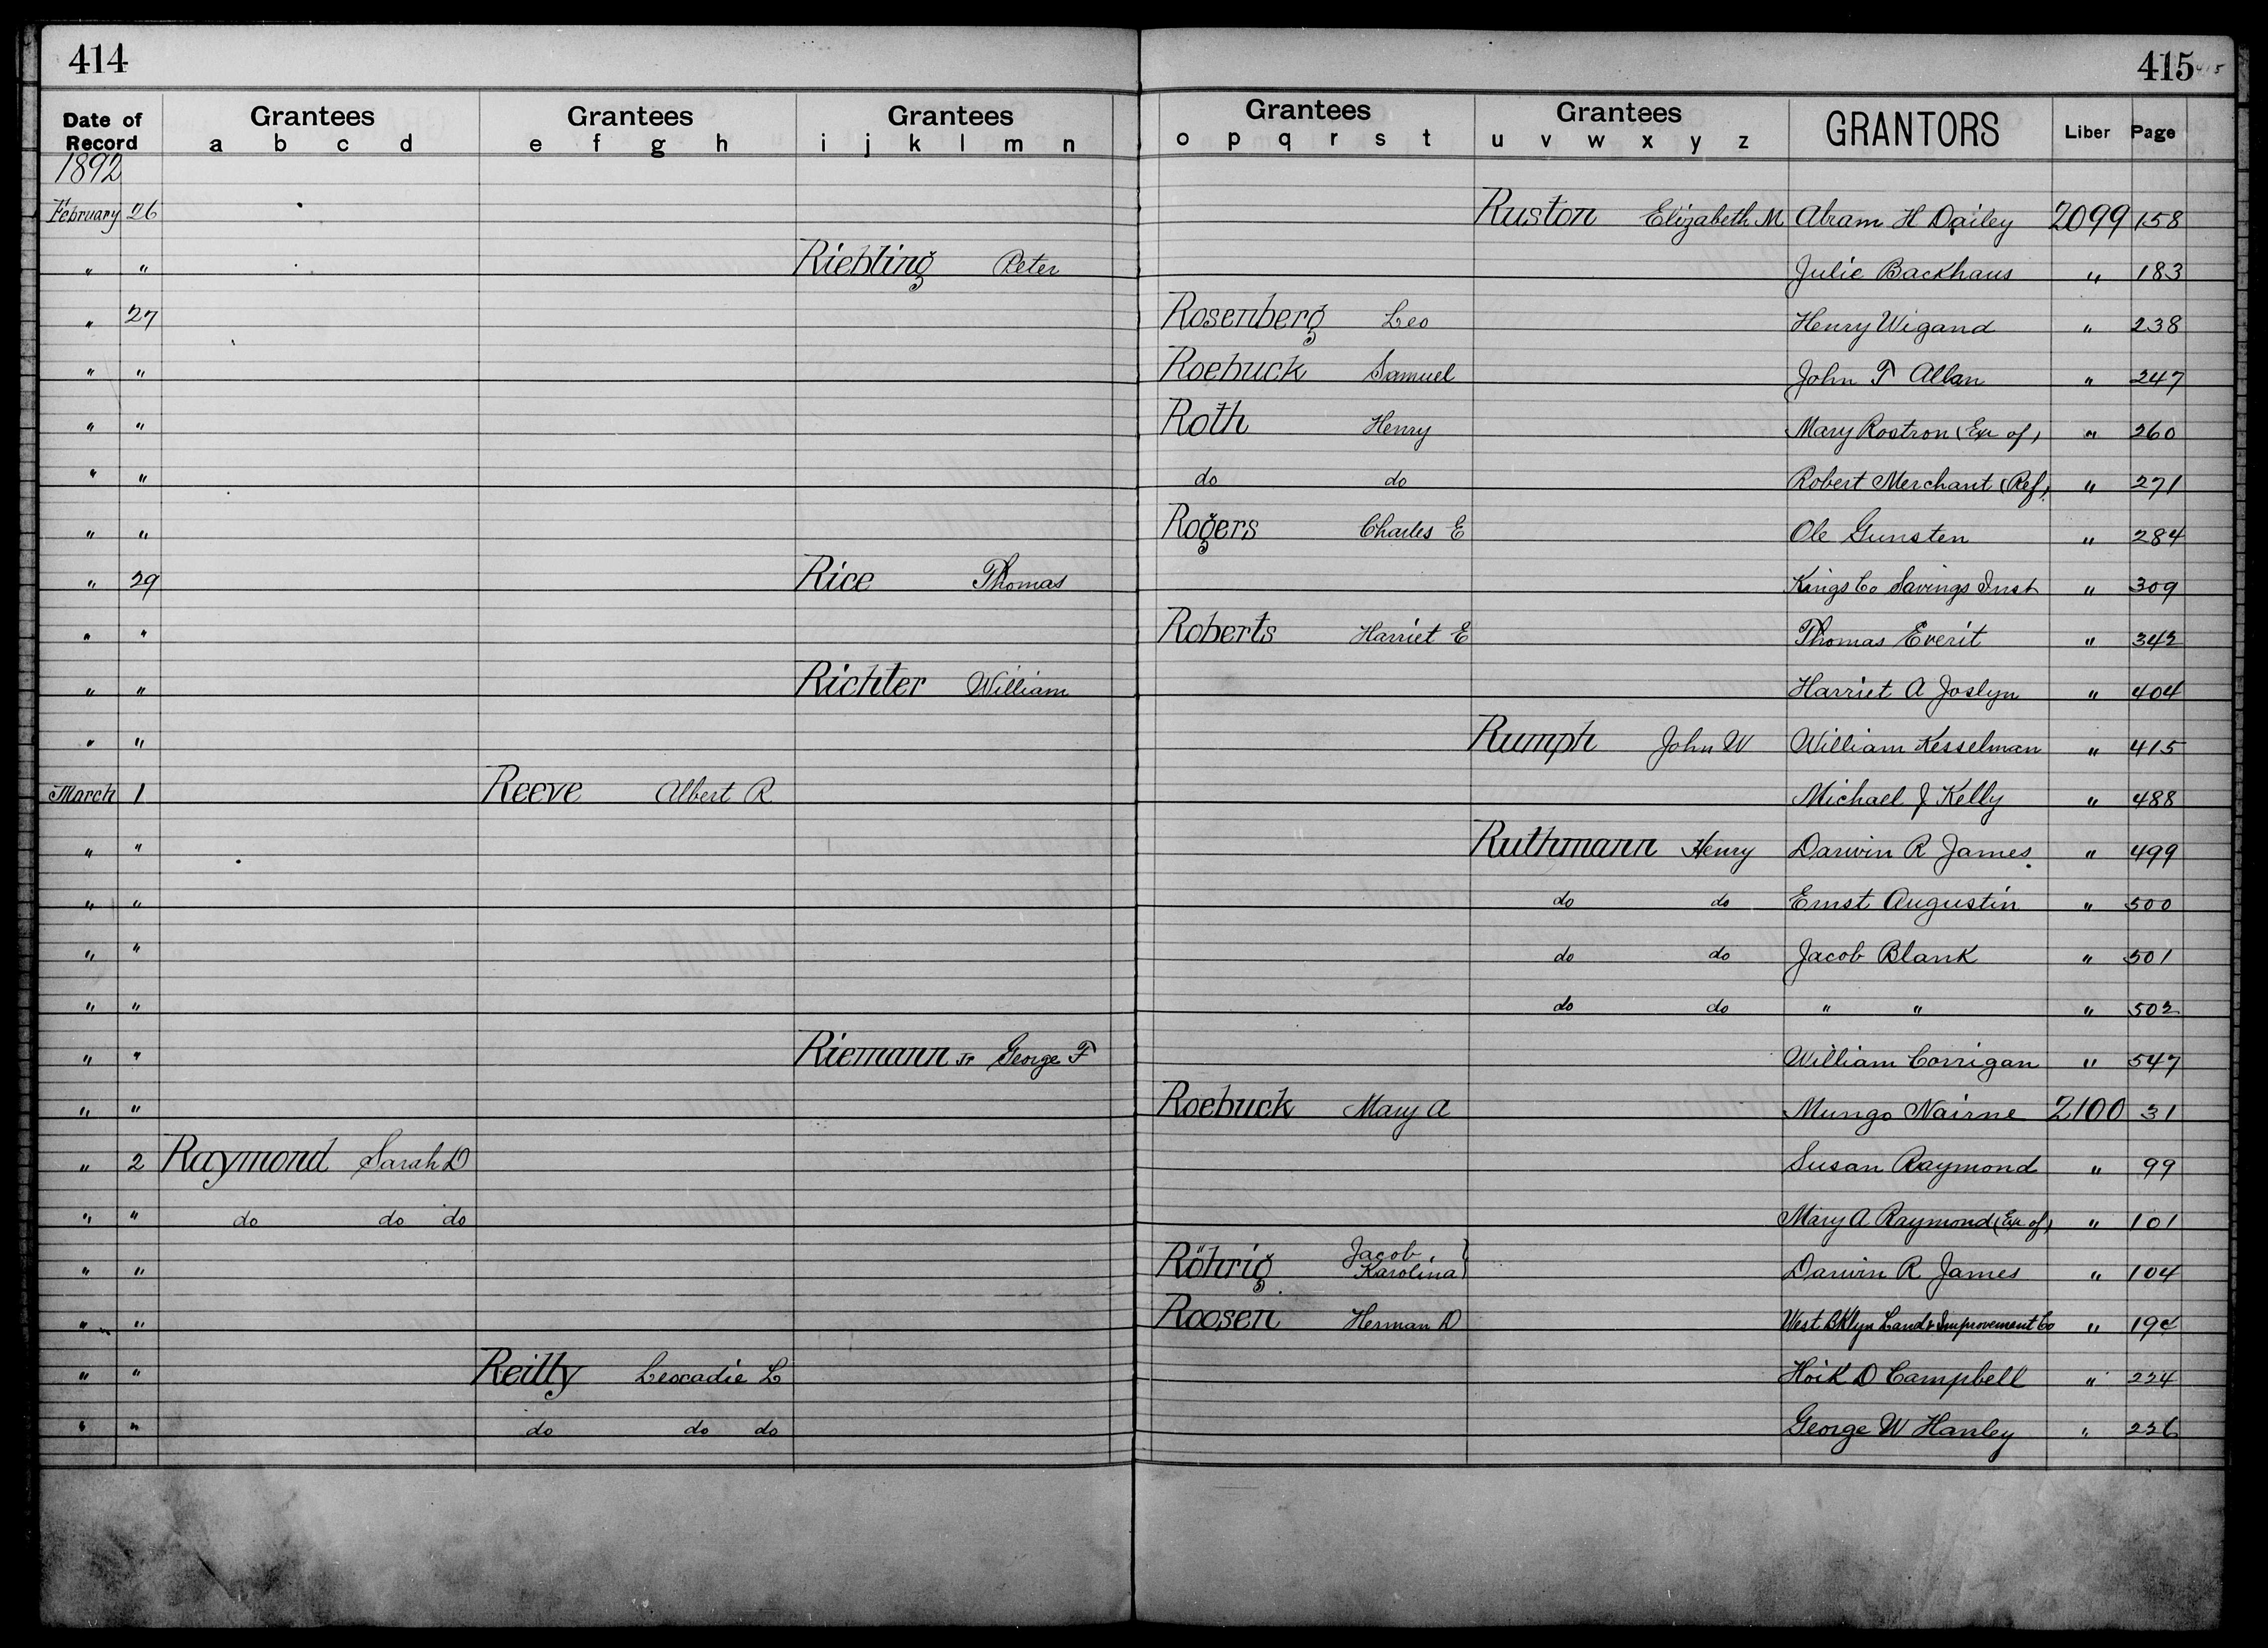 414
415
Date of Record Grantees a b c d Grantees e f g h Grantees i j k l m n Grantees o p q r s t Grantees u v w x y z GRANTORS Liber Page
1892
February 26 Ruston Elizabeth M Abram H Dailey 2099 158
" " Riebling Peter Julie Backhaus " 183
" 27 Rosenberg Leo Henry Wigand " 238
" " Roebuck Samuel John F Allan " 247
" " Roth Henry Mary Rostron (Exr of) " 260
" " do do Robert Merchant (Ref) " 271
" " Rogers Charles E Ole Gunsten " 284
" 29 Rice Thomas Kings Co Savings Inst " 309
" " Roberts Harriet E Thomas Everit " 342
" " Richter William Harriet A Joslyn " 404
" " Rumph John W William Kesselman " 415
March 1 Reeve Albert R Michael J Kelly " 488
" " Ruthmann Henry Darwin R James " 499
" " do do Ernst Augustin " 500
" " do do Jacob Blank " 501
" " do do " " " 502
" " Riemann Jr George F William Corrigan " 547
" " Roebuck Mary A Mungo Nairne 2100 31
" 2 Raymond Sarah D Susan Raymond " 99
" " do do do Mary A Raymond (Exr of) " 101
" " Röhrig Jacob Karolina } Darwin R James " 104
" " Roosen Herman D West Bklyn Land & Improvement Co " 194
" " Reilly Leocadie L D Campbell " 224
" " do do do George W Hanley " 226